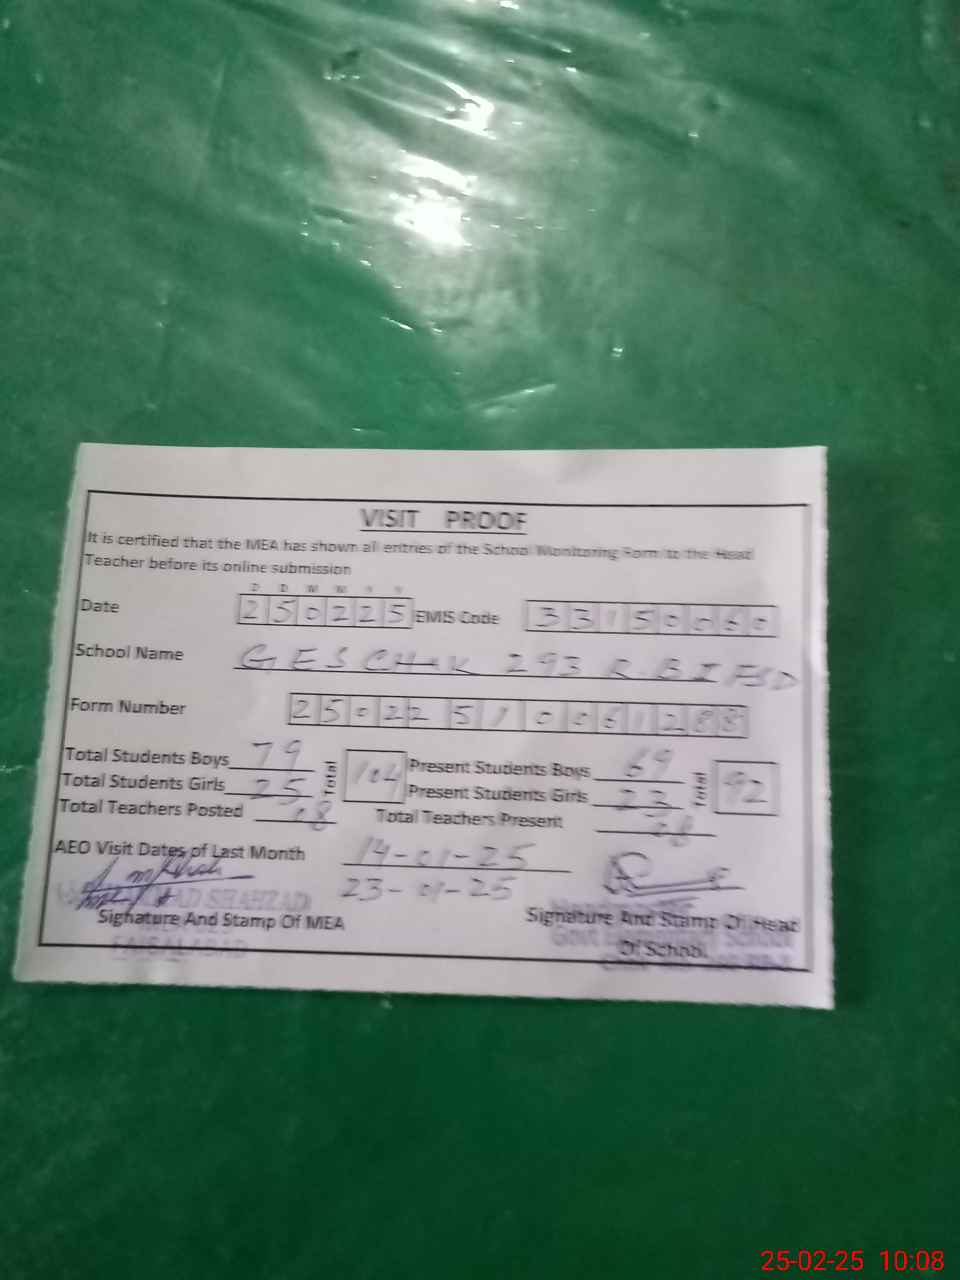 VISIT PROOF
It is certified that the MEA has shown all entries of the School Monitoring Form to the Head
Teacher before its online submission
D D M M Y Y
Date 250225 EMIS Code 33150060
School Name GES CHAK 293 R.B I FSD
Form Number 25022510061288
Total Students Boys 79 Total 104 Present Students Boys 69 Total 92
Total Students Girls 25 Present Students Girls 23
Total Teachers Posted 08 Total Teachers Present 08
AEO Visit Dates of Last Month 14-01-25
23-01-25
SHAHZAD
Signature And Stamp Of MEA Signature And Stamp Of Head
Of School
FAISALABAD
25-02-25 10:08